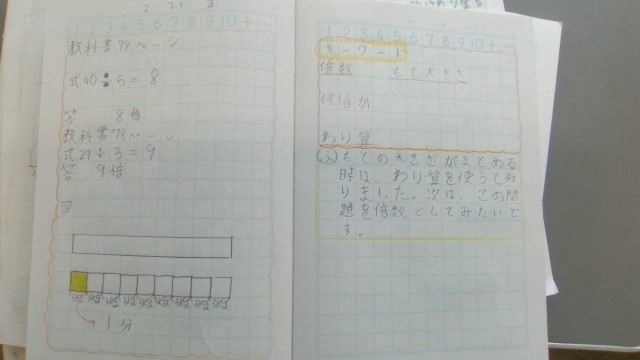 1 2 3 4 5 6 7 8 9 10 + −
教科書78ページ
式40÷5=8
答 8倍
教科書78ページ
式29÷3=9
答 9倍
図
1分
1 2 3 4 5 6 7 8 9 10 + −
キーワード
倍数 もと大きさ
何倍か
わり算
もとの大きさがまとめる
時は、わり算を使うとわ
りました。次は、この問
題を倍数でしてみたいで
す。